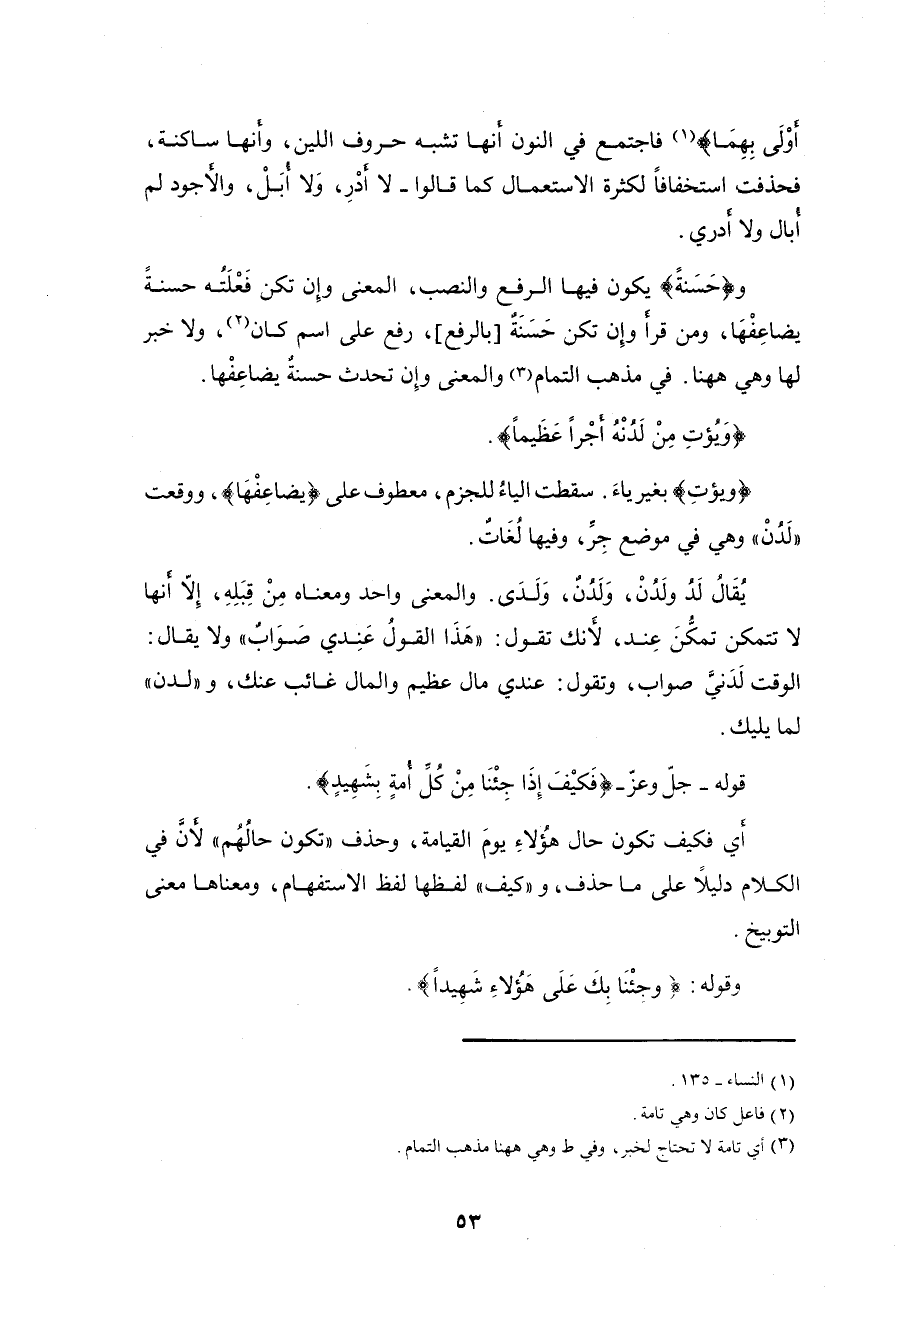 أَوْلَى بِهِمَا﴾(١) فاجتمع في النون أنها تشبه حروف اللين، وأنها ساكنة،
فحذفت استخفافاً لكثرة الاستعمال كما قالوا ـ لا أَدْرِ، وَلا أُبَلْ، والأجود لم
أبال ولا أدري.
و﴿حَسَنةً﴾ يكون فيها الرفع والنصب، المعنى وإن تكن فَعْلَتُه حسنةً
يضاعِفْهَا، ومن قرأ وإن تكن حَسَنَةٌ [بالرفع]، رفع على اسم كان(٢)، ولا خبر
لها وهي ههنا. في مذهب التمام(٣) والمعنى وإن تحدث حسنةٌ يضاعِفْها.
﴿وَيُؤتِ مِنْ لَدُنْهُ أَجْراً عَظَيماً﴾.
﴿ويؤتِ﴾ بغير ياءَ. سقطت الياءُ للجزم، معطوف على ﴿يضاعِفْهَا﴾، ووقعت
«لَدُنْ» وهي في موضع جِرٍّ، وفيها لُغَاتٌ.
يُقَالُ لَدُ ولَدُنْ، وَلَدُنٌ، وَلَدَى. والمعنى واحد ومعناه مِنْ قِبَلِهِ، إلاّ أنها
لا تتمكن تمكُّنَ عِند، لأنك تقول: «هَذَا القولُ عَنِدي صَوَابٌ» ولا يقال:
الوقت لَدَنيَّ صواب، وتقول: عندي مال عظيم والمال غائب عنك، و «لدن»
لما يليك.
قوله ـ جلّ وعزّ ـ ﴿فَكَيْفَ إِذَا جِئْنَا مِنْ كُلِّ أُمةٍ بِشَهِيدٍ﴾.
أي فكيف تكون حال هؤلاءِ يومَ القيامة، وحذف «تكون حالُهُم» لأنَّ في
الكلام دليلاً على ما حذف، و «كيف» لفظها لفظ الاستفهام، ومعناها معنى
التوبيخ.
وقوله: ﴿ وجِئْنَا بِكَ عَلَى هَؤُلاءِ شَهِيداً﴾.
(١) النساء ـ ١٣٥.
(٢) فاعل كان وهي تامة.
(٣) أي تامة لا تحتاج لخبر، وفي ط وهي ههنا مذهب التمام.
٥٣